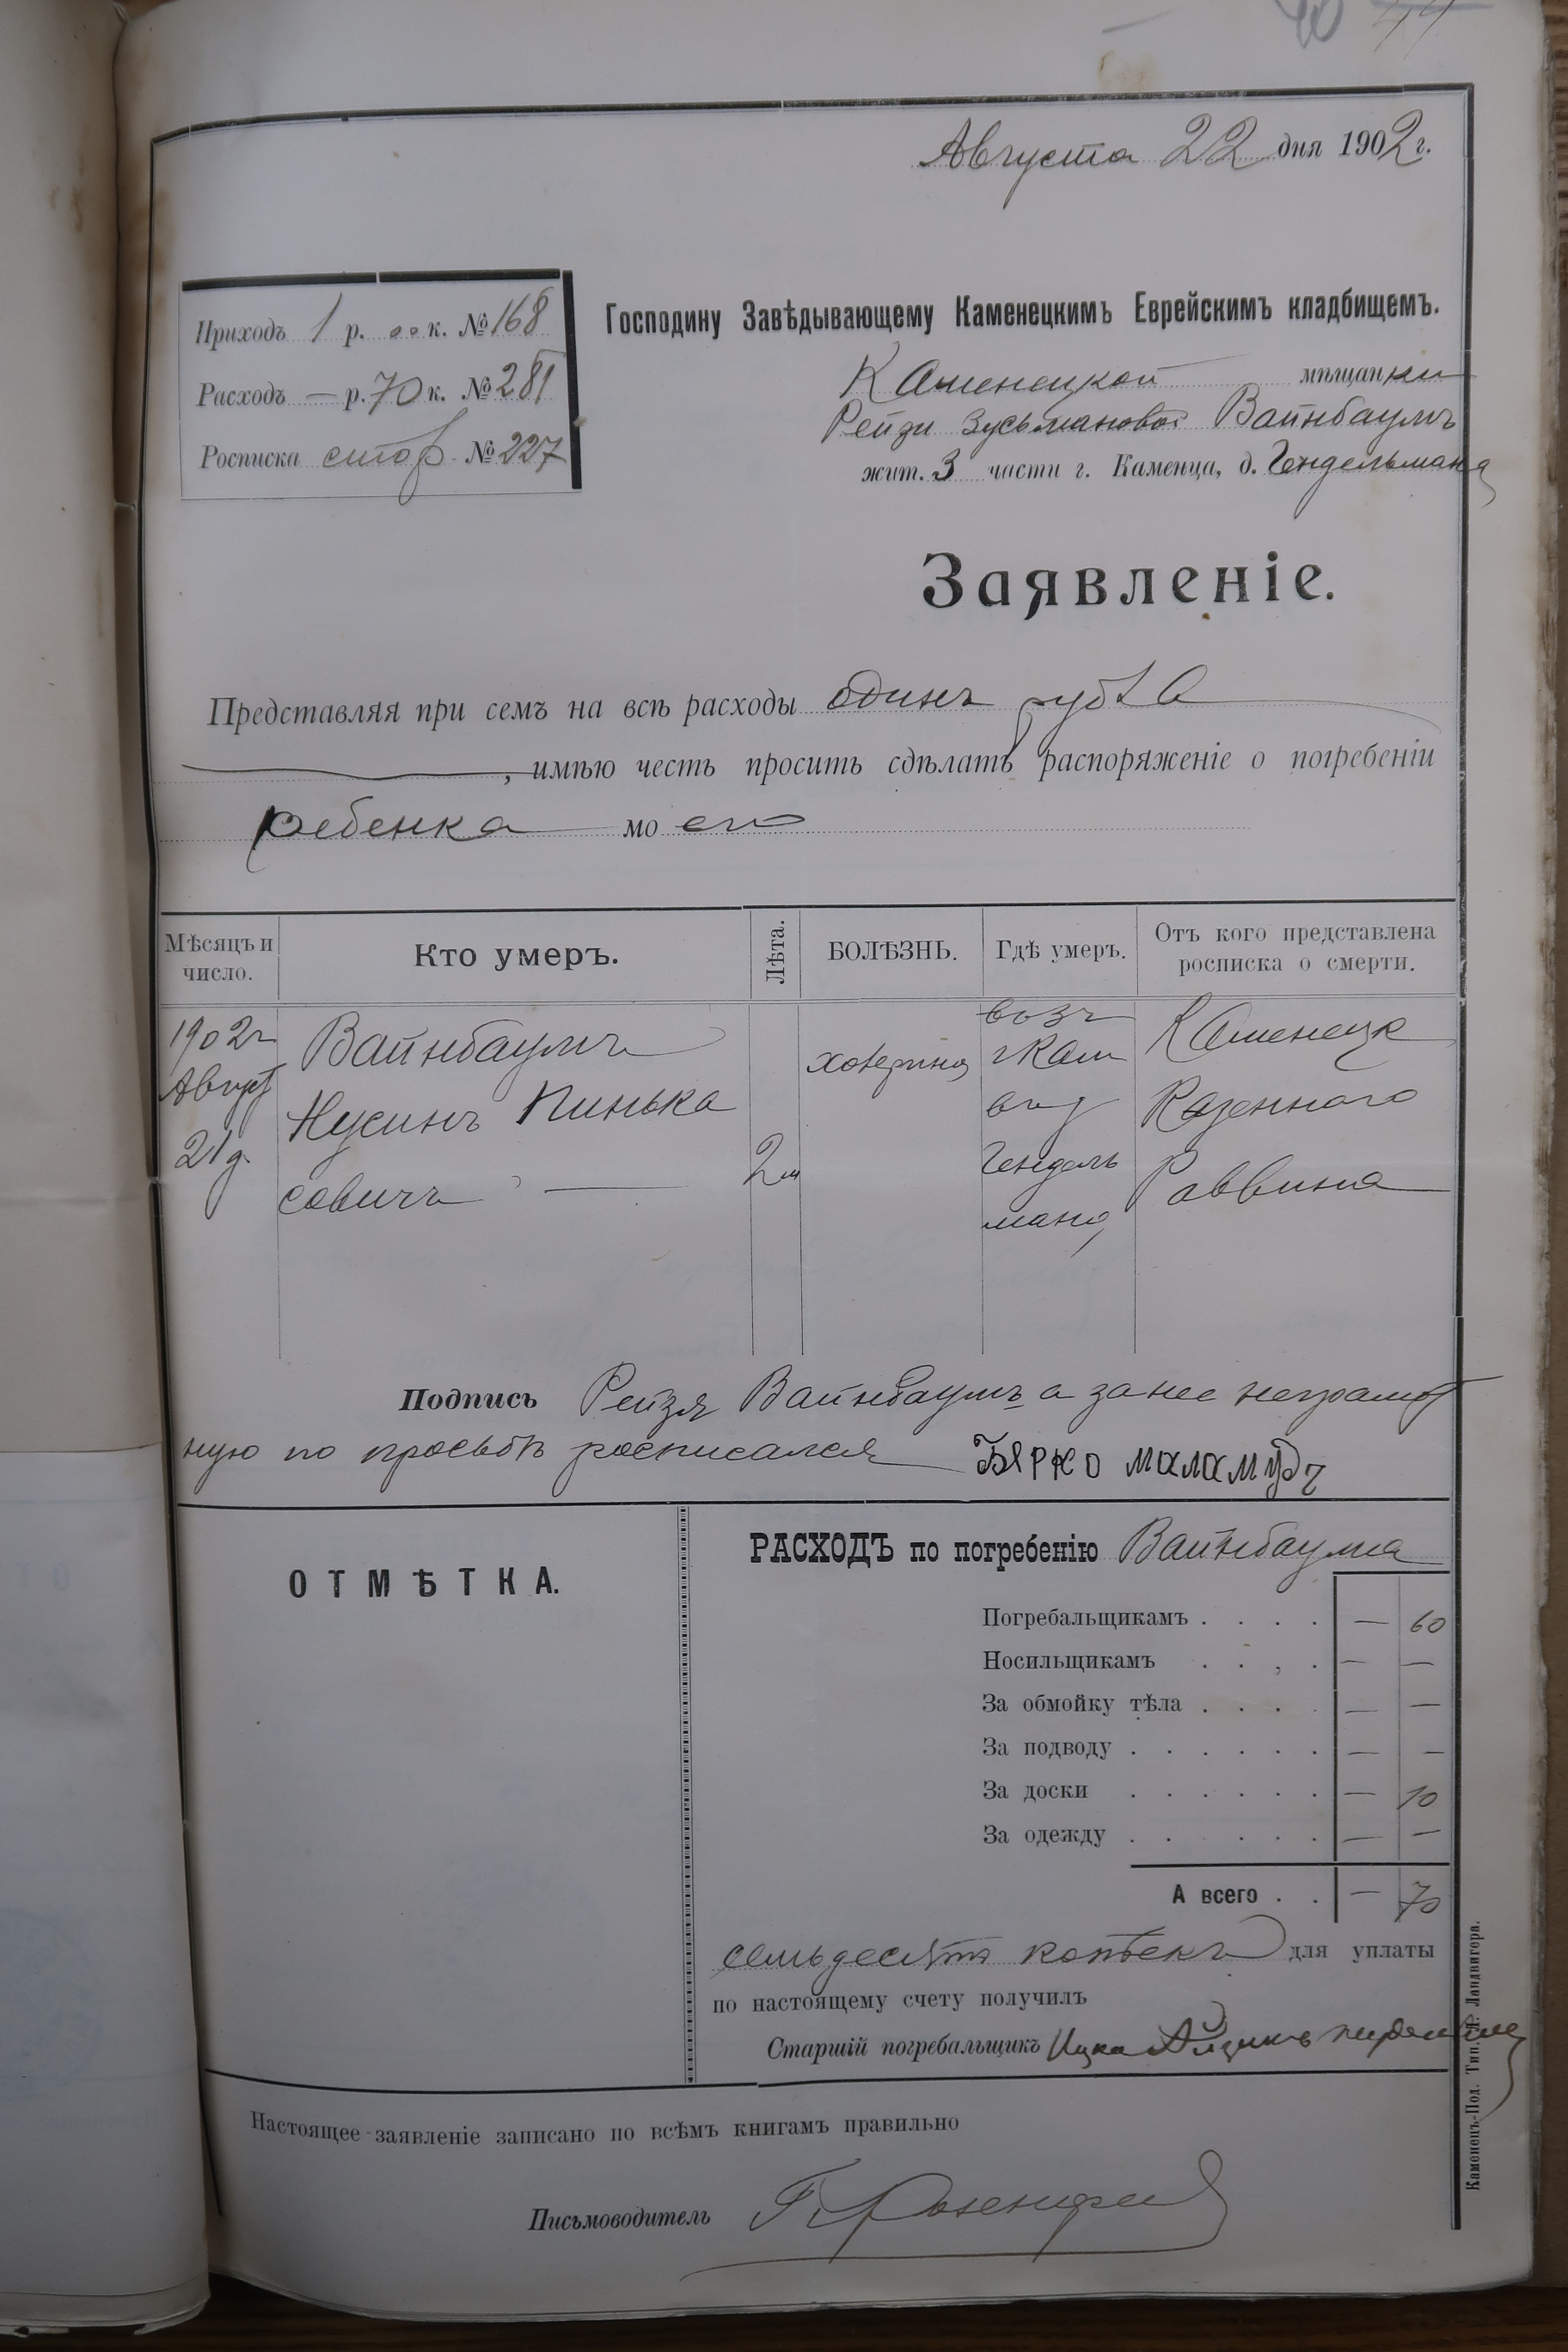 Августа 22 дня 1902 г.
Приходъ 1 р. оо к. № 168
Расходъ — р. 70 к. № 281
Росписка стор № 227
Господину Завѣдывающему Каменецкимъ Еврейскимъ кладбищемъ.
Каменецкой мѣщанки
Рейзи Зусьмановой Вайнбаумъ
жит. 3 части г. Каменца, д. Гендельмана
Заявленіе.
Представляя при семъ на всѣ расходы одинъ рубль
, имѣю честь просить сдѣлать распоряженіе о погребеніи
ребенка моего
Мѣсяцъ и число.
Кто умеръ.
Лѣта.
БОЛѢЗНЬ.
Гдѣ умеръ.
Отъ кого представлена росписка о смерти.
1902 г
Август
21 д.
Вайнбаумъ
Нусинъ Пинька
совичъ —
2 м
холерина
г Кам
в д
Гендель
мана
Каменецк
Казеннаго
Раввина
Подпись Рейзя Вайнбаумъ а за нее неграмот
ную по просьбѣ росписался Бярко маламудъ
ОТМѢТКА.
РАСХОДЪ по погребенію Вайнбаума
Погребальщикамъ . . . . — 60
Носильщикамъ . . , . — —
За обмойку тѣла . . . . — —
За подводу . . . . . . — —
За доски . . . . . . — 10
За одежду . . . . . . — —
А всего . . — 70
семьдесятъ копѣекъ для уплаты
по настоящему счету получилъ
Старшій погребальщикъ Ицко Айзикъ
Настоящее заявленіе записано по всѣмъ книгамъ правильно
Письмоводитель Г. Розенфел
Каменецъ-Под. Тип. Я. Ландвигера.